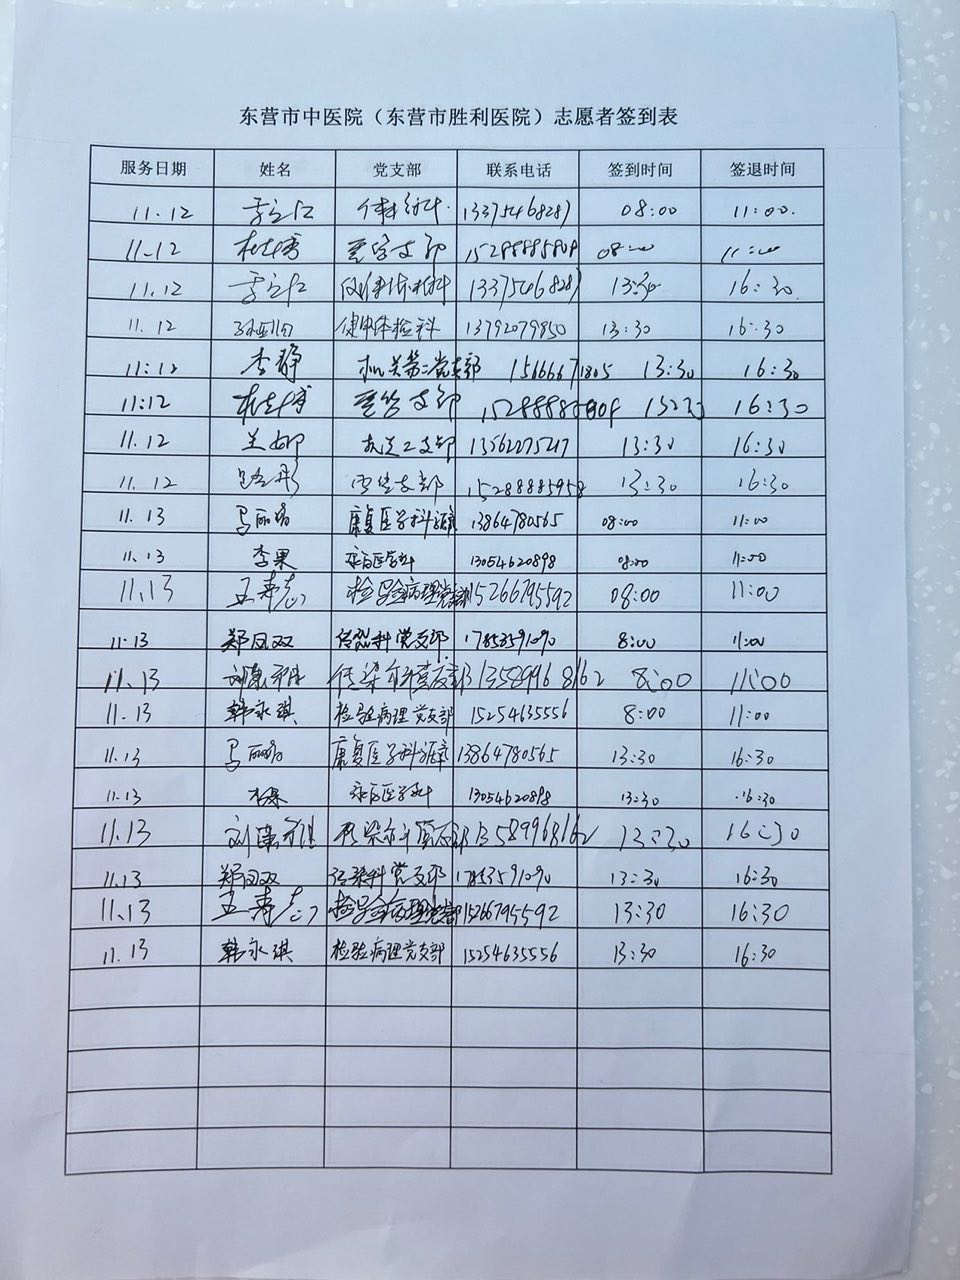 东营市中医院（东营市胜利医院）志愿者签到表
服务日期 姓名 党支部 联系电话 签到时间 签退时间
11.12 李立仁 13375468289 08:00 11:00.
11-12 支部 15288885809 08:00 11:00
11.12 李立仁 13375468289 13:30 16:30
11.12 健康体检科 13792079850 13:30 16:30
11:12 李静 机关第二党支部 15666671805 13:30 16:30
11:12 支部 16:30
11.12 支部 13562075217 13:30 16:30
11.12 支部 15288885958 13:30 16:30
11.13 马丽娟 康复医学科 13864780565 08:00 11:00
11.13 李果 13054620898 08:00 11:00
11.13 王寿志 检验病理党支部 15266795592 08:00 11:00
11.13 郑凤双 传染科党支部 17853591090 8:00 11:00
11.13 传染科党支部 13589968162 8:00 11:00
11.13 韩永琪 检验病理党支部 15254635556 8:00 11:00
11.13 马丽娟 康复医学科 13864780565 13:30 16:30
11.13 李果 13054620898 13:30 16:30
11.13 传染科党支部 13589968162 13:30 16:30
11.13 郑凤双 传染科党支部 17853591090 13:30 16:30
11.13 王寿志 检验病理党支部 15266795592 13:30 16:30
11.13 韩永琪 检验病理党支部 15254635556 13:30 16:30